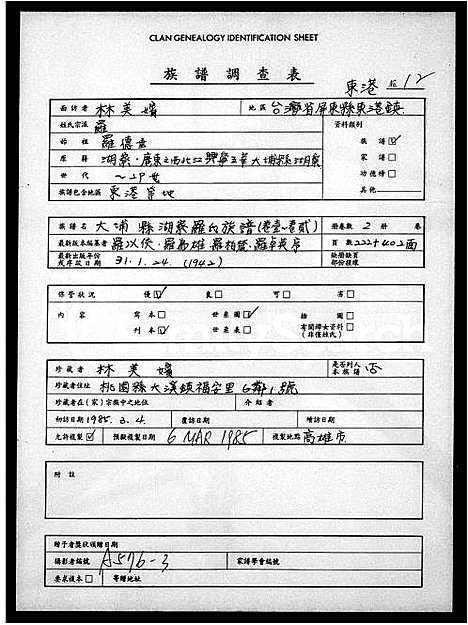 CLAN GENEALOGY IDENTIFICATION SHEET
族譜調查表
東港 12
面訪者 林美嬪 地區 台灣省屏東縣東港鎮
姓氏宗派 羅 資料類別
始祖 羅德 族譜☑
原籍 湖寮·廣東之西北江興寧五華大埔縣湖寮 家譜□
世代 ~29世 功德榜□
族譜包含地區 東港等地 其他
族譜名 大浦縣湖寮羅氏族譜(卷壹~卷貳) 冊卷數 2 冊 卷
最新版本編纂者 羅以俟.羅為雄.羅柏 .羅卓英序 頁數 222+402面
最新出版年份或序跋日期 31.1.24.(1942) 缺冊缺頁部份穫壞
保管狀況 優☑ 良□ 可□ 劣□
內容 寫本□ 世系圖☑ 插圖□
刊本☑ 世系表□ 有關婦女資料□(非僅姓氏)
珍藏者 林美嬪 是否列入本族譜 否
珍藏者住址 桃園縣大溪鎮福安里6鄰1號
珍藏者在(家)宗族中之地位 介紹者
初訪日期 1985.3.4. 覆訪日期 續訪日期
允許複製☑ 預擬複製日期 6 MAR 1985 複製地點 高雄市
附註
贈予者獎狀頒贈日期
攝影者編號 A576-3 家譜學會編號
要求複本□ 寄贈地址